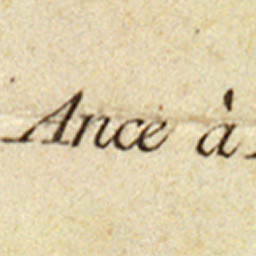 Ance à